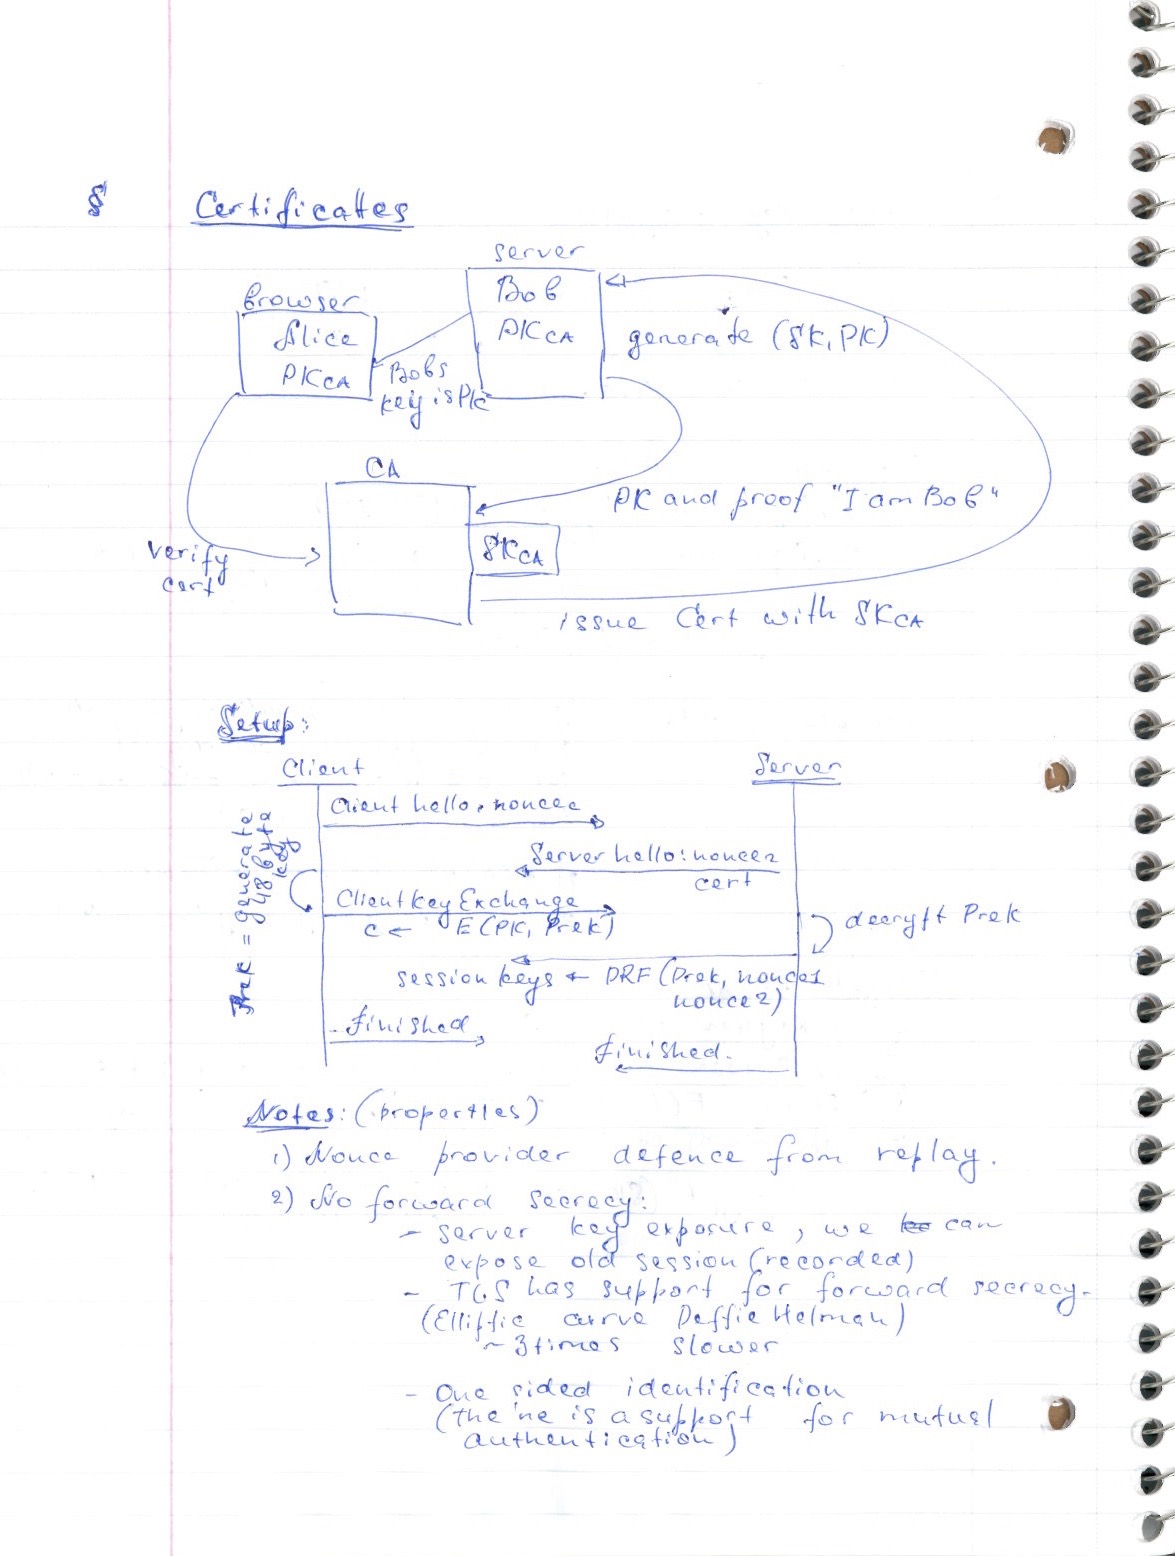 § Certificattes
server
Bob
PK CA
browser
Alice
PK CA
Bobs
key is PK
generate (SK, PK)
CA
PK and proof "I am Bob"
SK CA
verify
cert
issue Cert with SK CA
Setup:
Client
Server
Client hello, nonce
Server hello: nonce2
cert
PreK = generate
48 byte
key
Client key Exchange
c ← E(PK, PreK)
decrypt PreK
session keys ← PRF (PreK, nonce1
nonce2)
finished
finished.
Notes: (properties)
1) Nonce provider defence from replay.
2) No forward secrecy:
- server key exposure, we can
expose old session (recorded)
- TLS has support for forward secrecy.
(Elliptic curve Deffie Helman)
~ 3 times slower
- One sided identification
(the ne is a support for mutual
authentication)